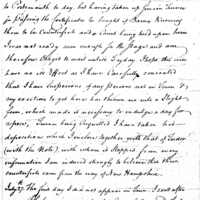 to Portsmouth to day, but having taken up Gideon Turner
for Passing the Certificates he bought of Barns Knowing
them to be Counterfeit and a Court being held upon him
I was not ready soon enough for the Stage and am
therefore Obliged to wait until Friday. I hope this will
have no ill Effect as I have Carefully concealed
that I have Suspicions of any Person out in Town &
any exertions to get here has thrown me into a Slight
fever, which made it necessary to indulge a day for
repose, Turner being Acquitted I have taken his
deposition which I enclose together with that of
(with the Note), with whom it Stopped from every
information I am induced strongly to believe that these
counterfeits came from the way of New Hampshire.
July 27th. The first day I did not appear in Town. I sent after